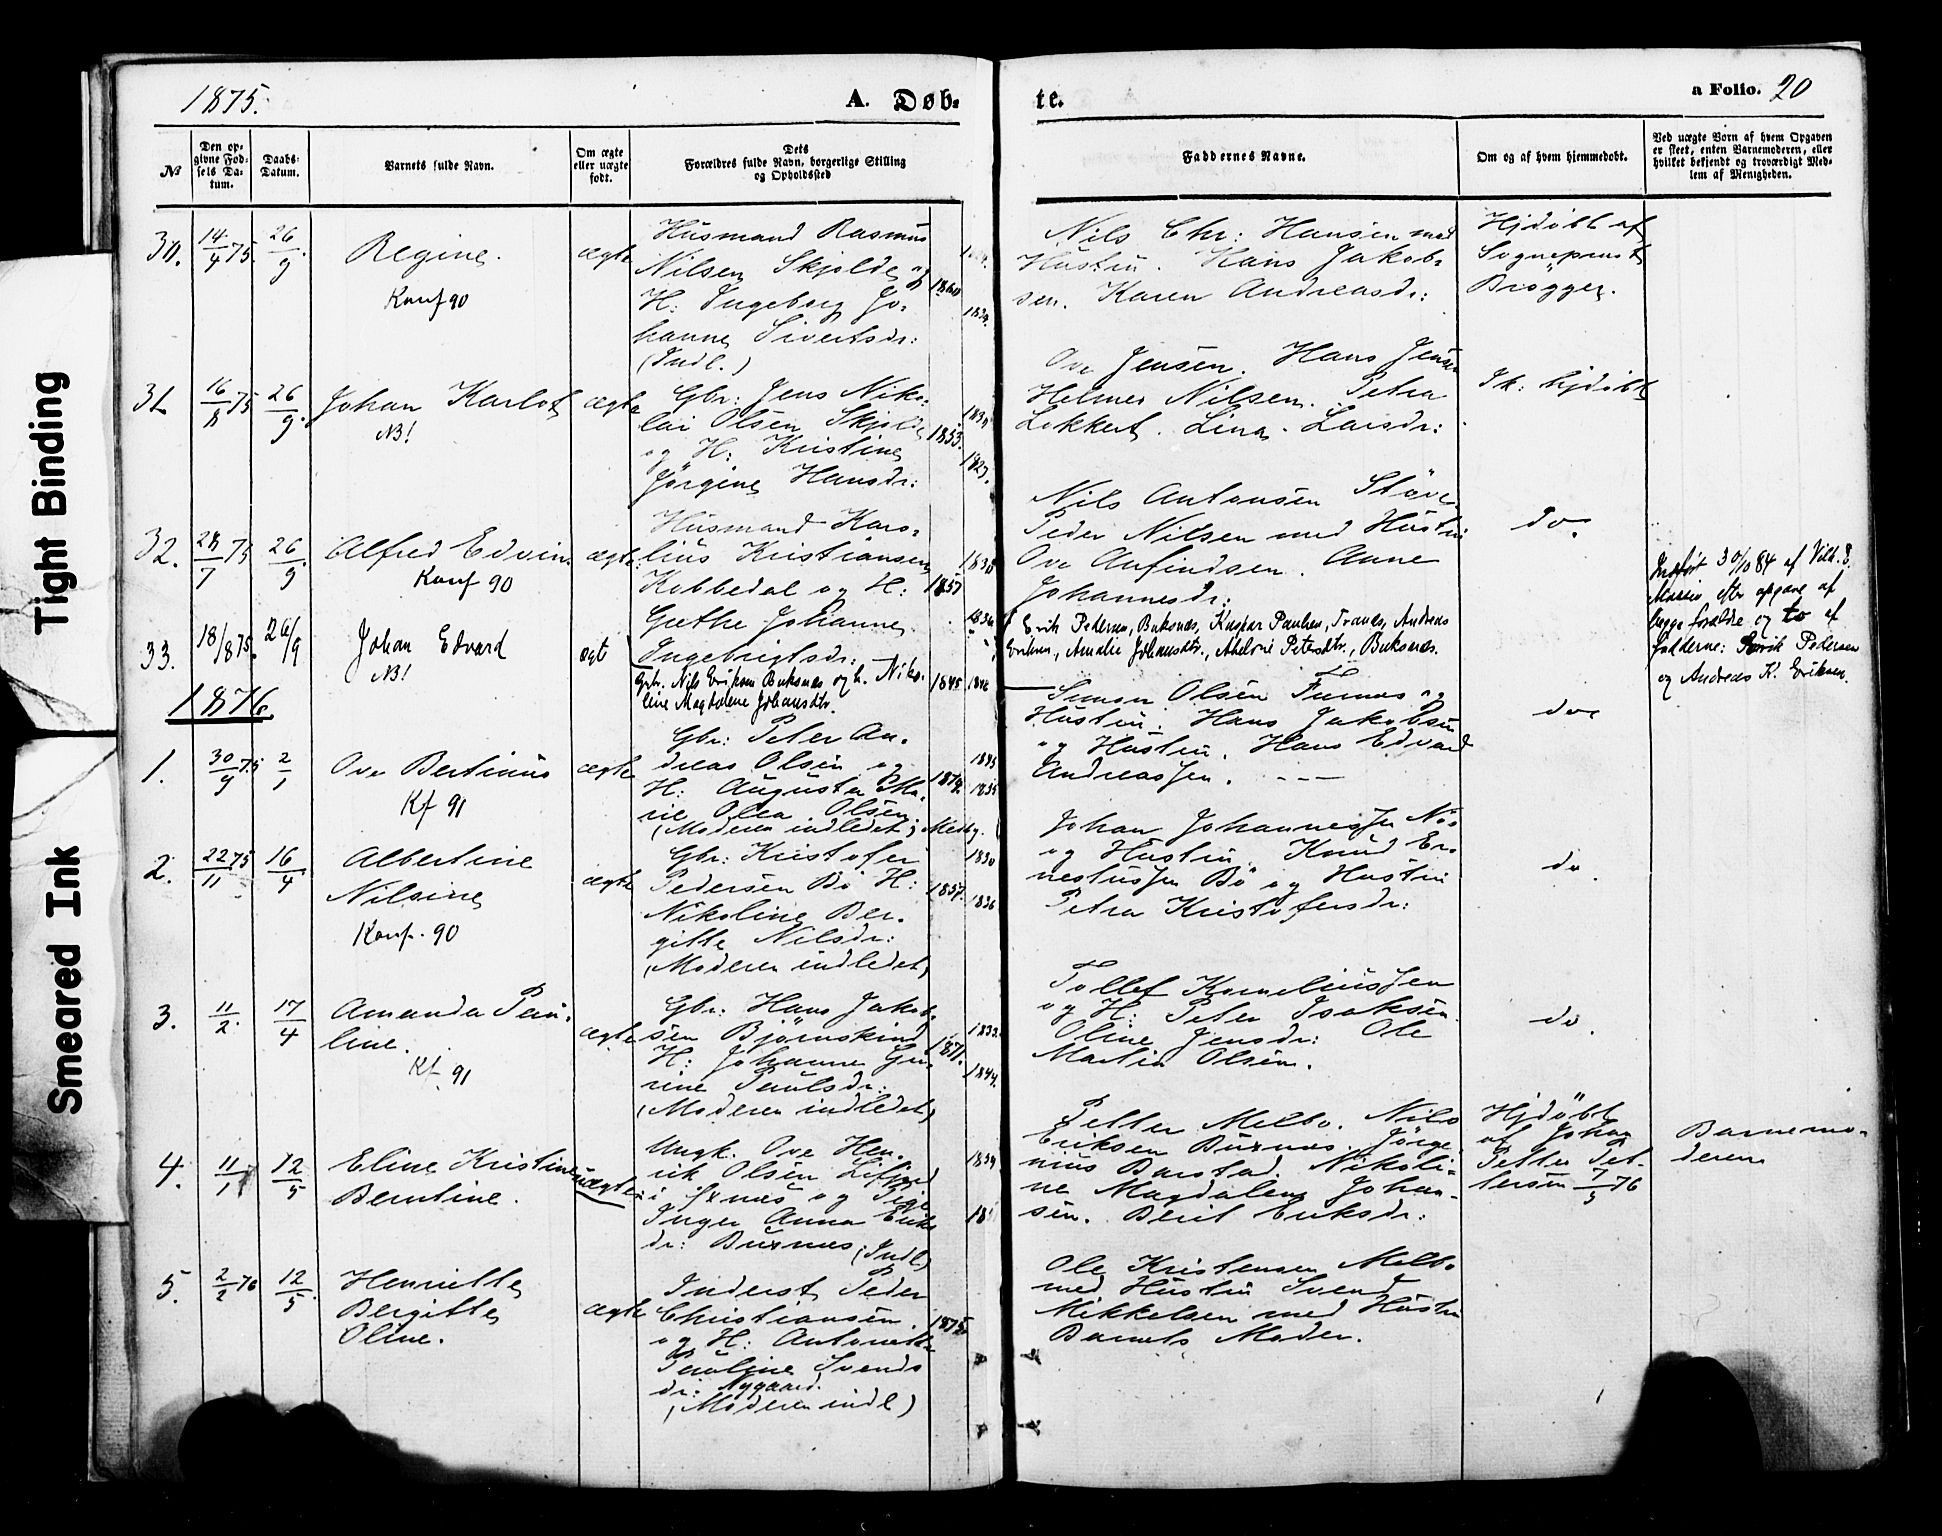 Tight Binding
Smeared Ink
1875.
A. Døb-
te.
a Folio. 20
№
Den op-
givne Fød-
sels Da-
tum.
Daabs-
Datum.
Barnets fulde Navn.
Om ægte
eller uægte
født.
Dets
Forældres fulde Navn, borgerlige Stilling
og Opholdssted
Faddernes Navne.
Om og af hvem hjemmedøbt.
Ved uægte Børn af hvem Opgaven
er skeet, enten Barnemoderen, eller
hvilket bekjendt og troværdigt Med-
lem af Menigheden.
30. 14/4 75. 26/9 Regine. ægte
Konf 90
Husmand Rasmus
Nilsen Skjolde og
H: Ingeborg Jo-
hanne Sivertsdr:
(Indl.)
1860
1834.
Nils Chr: Hansen med
Hustru. Hans Jakob-
sen. Karen Andreasdr:
Hjdøbt af
Sogneprest
Brøgger.
31 16/8 75 26/9. Johan Karlot ægte
NB!
Gbr: Jens Niko-
lai Olsen Skjolde
og H: Kristine
Jørgine Hansdr:
1853.
1827.
Ove Jensen. Hans Jensen
Helmer Nilsen. Petra
Lokkert. Lina Larsdr:
Ik: hjdøbt
32. 28/7 75 26/9 Alfred Edvin. ægte
Konf 90
Husmand Karo-
lius Kristiansen
Kobbedal og H:
Grethe Johanne
Ingebrigtsdr:
1838
1857
1836
Nils Antonsen Støve
Peder Nilsen med Hustru
Ove Anfindsen. Anne
Johannesdr:
do.
33. 18/8 75. 26/9 Johan Edvard ægt
NB!
Gbr. Nils Eriksen Buksnæs og h. Niko-
line Magdalene Johansdtr.
1845 1846
Erik Pedersen, Buksnæs, Kaspar Paulsen, Tranes, Andreas
Eriksen, Amalie Johansdtr., Abelone Petersdtr., Buksnæs.
Indført 30/10 84 af Vilh. P.
Massio efter opgave af
begge forældre og to af
fadderne: Erik Pedersen
og Andreas K. Eriksen.
1876.
1. 30/9 75 2/1 Ove Bertinius ægte
Kf 91
Gbr: Peter An-
dreas Olsen og
H: Augusta Ma-
rie Olea Olsen
(Moderen indledet; Melby.)
1845
1874.
1835
Simon Olsen Furnes og
Hustru. Hans Jakobsen
og Hustru. Hans Edvard
Andreassen.
do
2. 22/11 75 16/4 Albertine
Nilsine ægte
Konf. 90
Gbr: Kristofer
Pedersen Bö H:
Nikoline Ber-
gitte Nilsdr:
(Moderen indledet)
1830
1857.
1836
Johan Johannessen Nös
og Hustru. Knud Er-
nestussen Bö og Hustru
Petra Kristofersdr:
do.
3. 11/2. 17/4 Amanda Pau-
line. ægte
Kf 91
Gbr: Hans Jakob-
sen Bjørnskind
H: Johanne Gu-
rine Paulsdr:
(Moderen indledet)
1832.
1871.
1844.
Tollef Korneliussen
og H: Peter Isaksen.
Oline Jensdr: Ole
Martin Olsen.
do.
4. 11/1 12/5 Eline Kristine
Berntine. uægte
Ungk. Ove Hen-
rik Olsen Lifjord
i Öxnæs og Pige
Inger Anna Eriks-
dr: Buxnæs (Indl)
1839
Petter Melbo. Nils
Eriksen Buxnæs. Jørge-
nius Barstad. Nikoli-
ne Magdalene Johan-
sen. Berit Eriksdr:
Hjdøbt
af Johan
Petter Pet-
tersen 7/3 76
Barnemo-
deren
5. 2/2 76 12/5. Henriette
Bergitte
Oline. ægte
Inderst Peder
Christiansen.
og H: Antonette
Pauline Svends
dr: Nygaard.
(Moderen indl)
1875
Ole Kristensen Melbo
med Hustru Svend
Mikkelsen med Hustru
Barnets Moder.